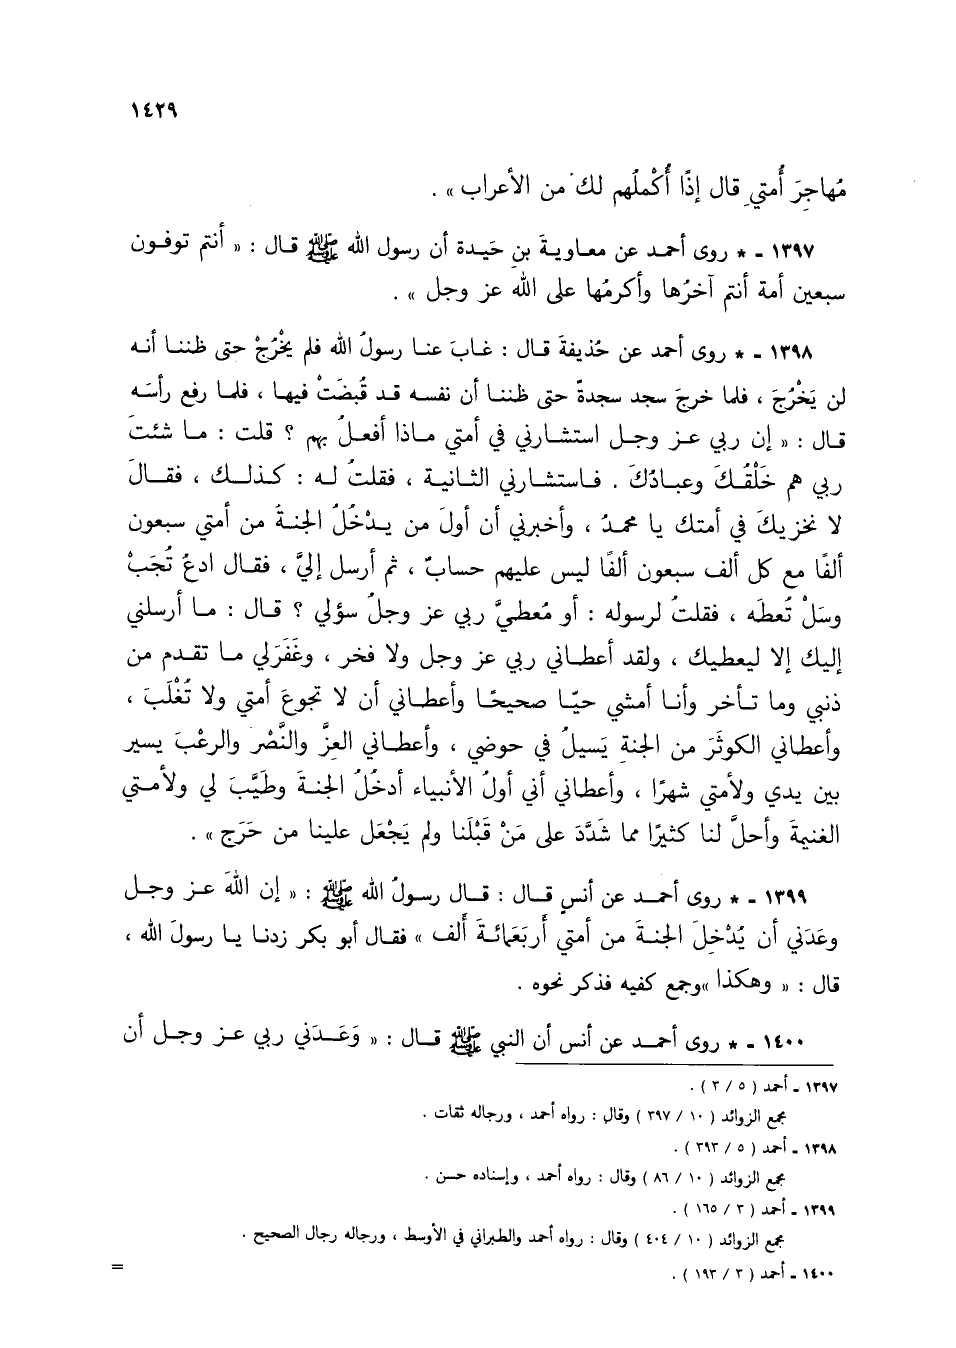 ١٤٢٩
مُهاجِرَ أُمتي قال إذًا أُكْملُهم لك من الأعراب » .
١٣٩٧ - * روى أحمد عن معاويةَ بنِ حَيدة أن رسول الله ﷺ قال : « أنتم توفون
سبعين أمة أنتم آخرُها وأكرمُها على الله عز وجل » .
١٣٩٨ - * روى أحمد عن حُذيفةَ قال : غابَ عنا رسولُ الله فلم يخْرُجْ حتى ظننا أنه
لن يَخْرُجَ ، فلما خرجَ سجد سجدةً حتى ظننا أن نفسه قد قُبضَتْ فيها ، فلما رفع رأسَه
قال : « إن ربي عز وجل استشارني في أمتي ماذا أفعلُ بهم ؟ قلت : ما شئتَ
ربي هم خَلْقُكَ وعبادُكَ . فاستشارني الثانية ، فقلتُ له : كذلك ، فقالَ
لا نخزيكَ في أمتك يا محمدُ ، وأخبرني أن أولَ من يدْخُلُ الجنةَ من أمتي سبعون
ألفًا مع كل ألف سبعون ألفًا ليس عليهم حسابٌ ، ثم أرسل إليَّ ، فقال ادعُ تُجَبْ
وسَلْ تُعطَه ، فقلتُ لرسوله : أو مُعطيَّ ربي عز وجلُ سؤلي ؟ قال : ما أرسلني
إليك إلا ليعطيك ، ولقد أعطاني ربي عز وجل ولا فخر ، وغَفَرَلي ما تقدم من
ذنبي وما تأخر وأنا أمشي حيّا صحيحًا وأعطاني أن لا تجوعَ أمتي ولا تُغْلَبَ ،
وأعطاني الكوثَرَ من الجنةِ يَسيلُ في حوضي ، وأعطاني العزَّ والنَّصْر والرعْبَ يسير
بين يدي ولأمتي شهرًا ، وأعطاني أني أولُ الأنبياء أدخُلُ الجنةَ وطَيَّبَ لي ولأمتي
الغنيمةَ وأحلَّ لنا كثيرًا مما شَدَّدَ على مَنْ قَبْلَنا ولم يَجْعَل علينا من حَرَج » .
١٣٩٩ - * روى أحمد عن أنسٍ قال : قال رسولُ الله ﷺ : « إن اللهَ عز وجل
وعَدَني أن يُدْخِلَ الجنةَ من أمتي أَربَعَمائةَ أَلف » فقال أبو بكر زدنا يا رسولَ الله ،
قال : « وهكذا »وجمع كفيه فذكر نحوه .
١٤٠٠ - * روى أحمد عن أنس أن النبي ﷺ قال : « وَعَدَني ربي عز وجل أن
١٣٩٧ - أحمد ( ٥ / ٣ ) .
مجمع الزوائد ( ١٠ / ٣٩٧ ) وقال : رواه أحمد ، ورجاله ثقات .
١٣٩٨ - أحمد ( ٥ / ٣٩٣ ) .
مجمع الزوائد ( ١٠ / ٨٦ ) وقال : رواه أحمد ، وإسناده حسن .
١٣٩٩ - أحمد ( ٣ / ١٦٥ ) .
مجمع الزوائد ( ١٠ / ٤٠٤ ) وقال : رواه أحمد والطبراني في الأوسط ، ورجاله رجال الصحيح .
١٤٠٠ - أحمد ( ٣ / ١٩٣ ) .
=